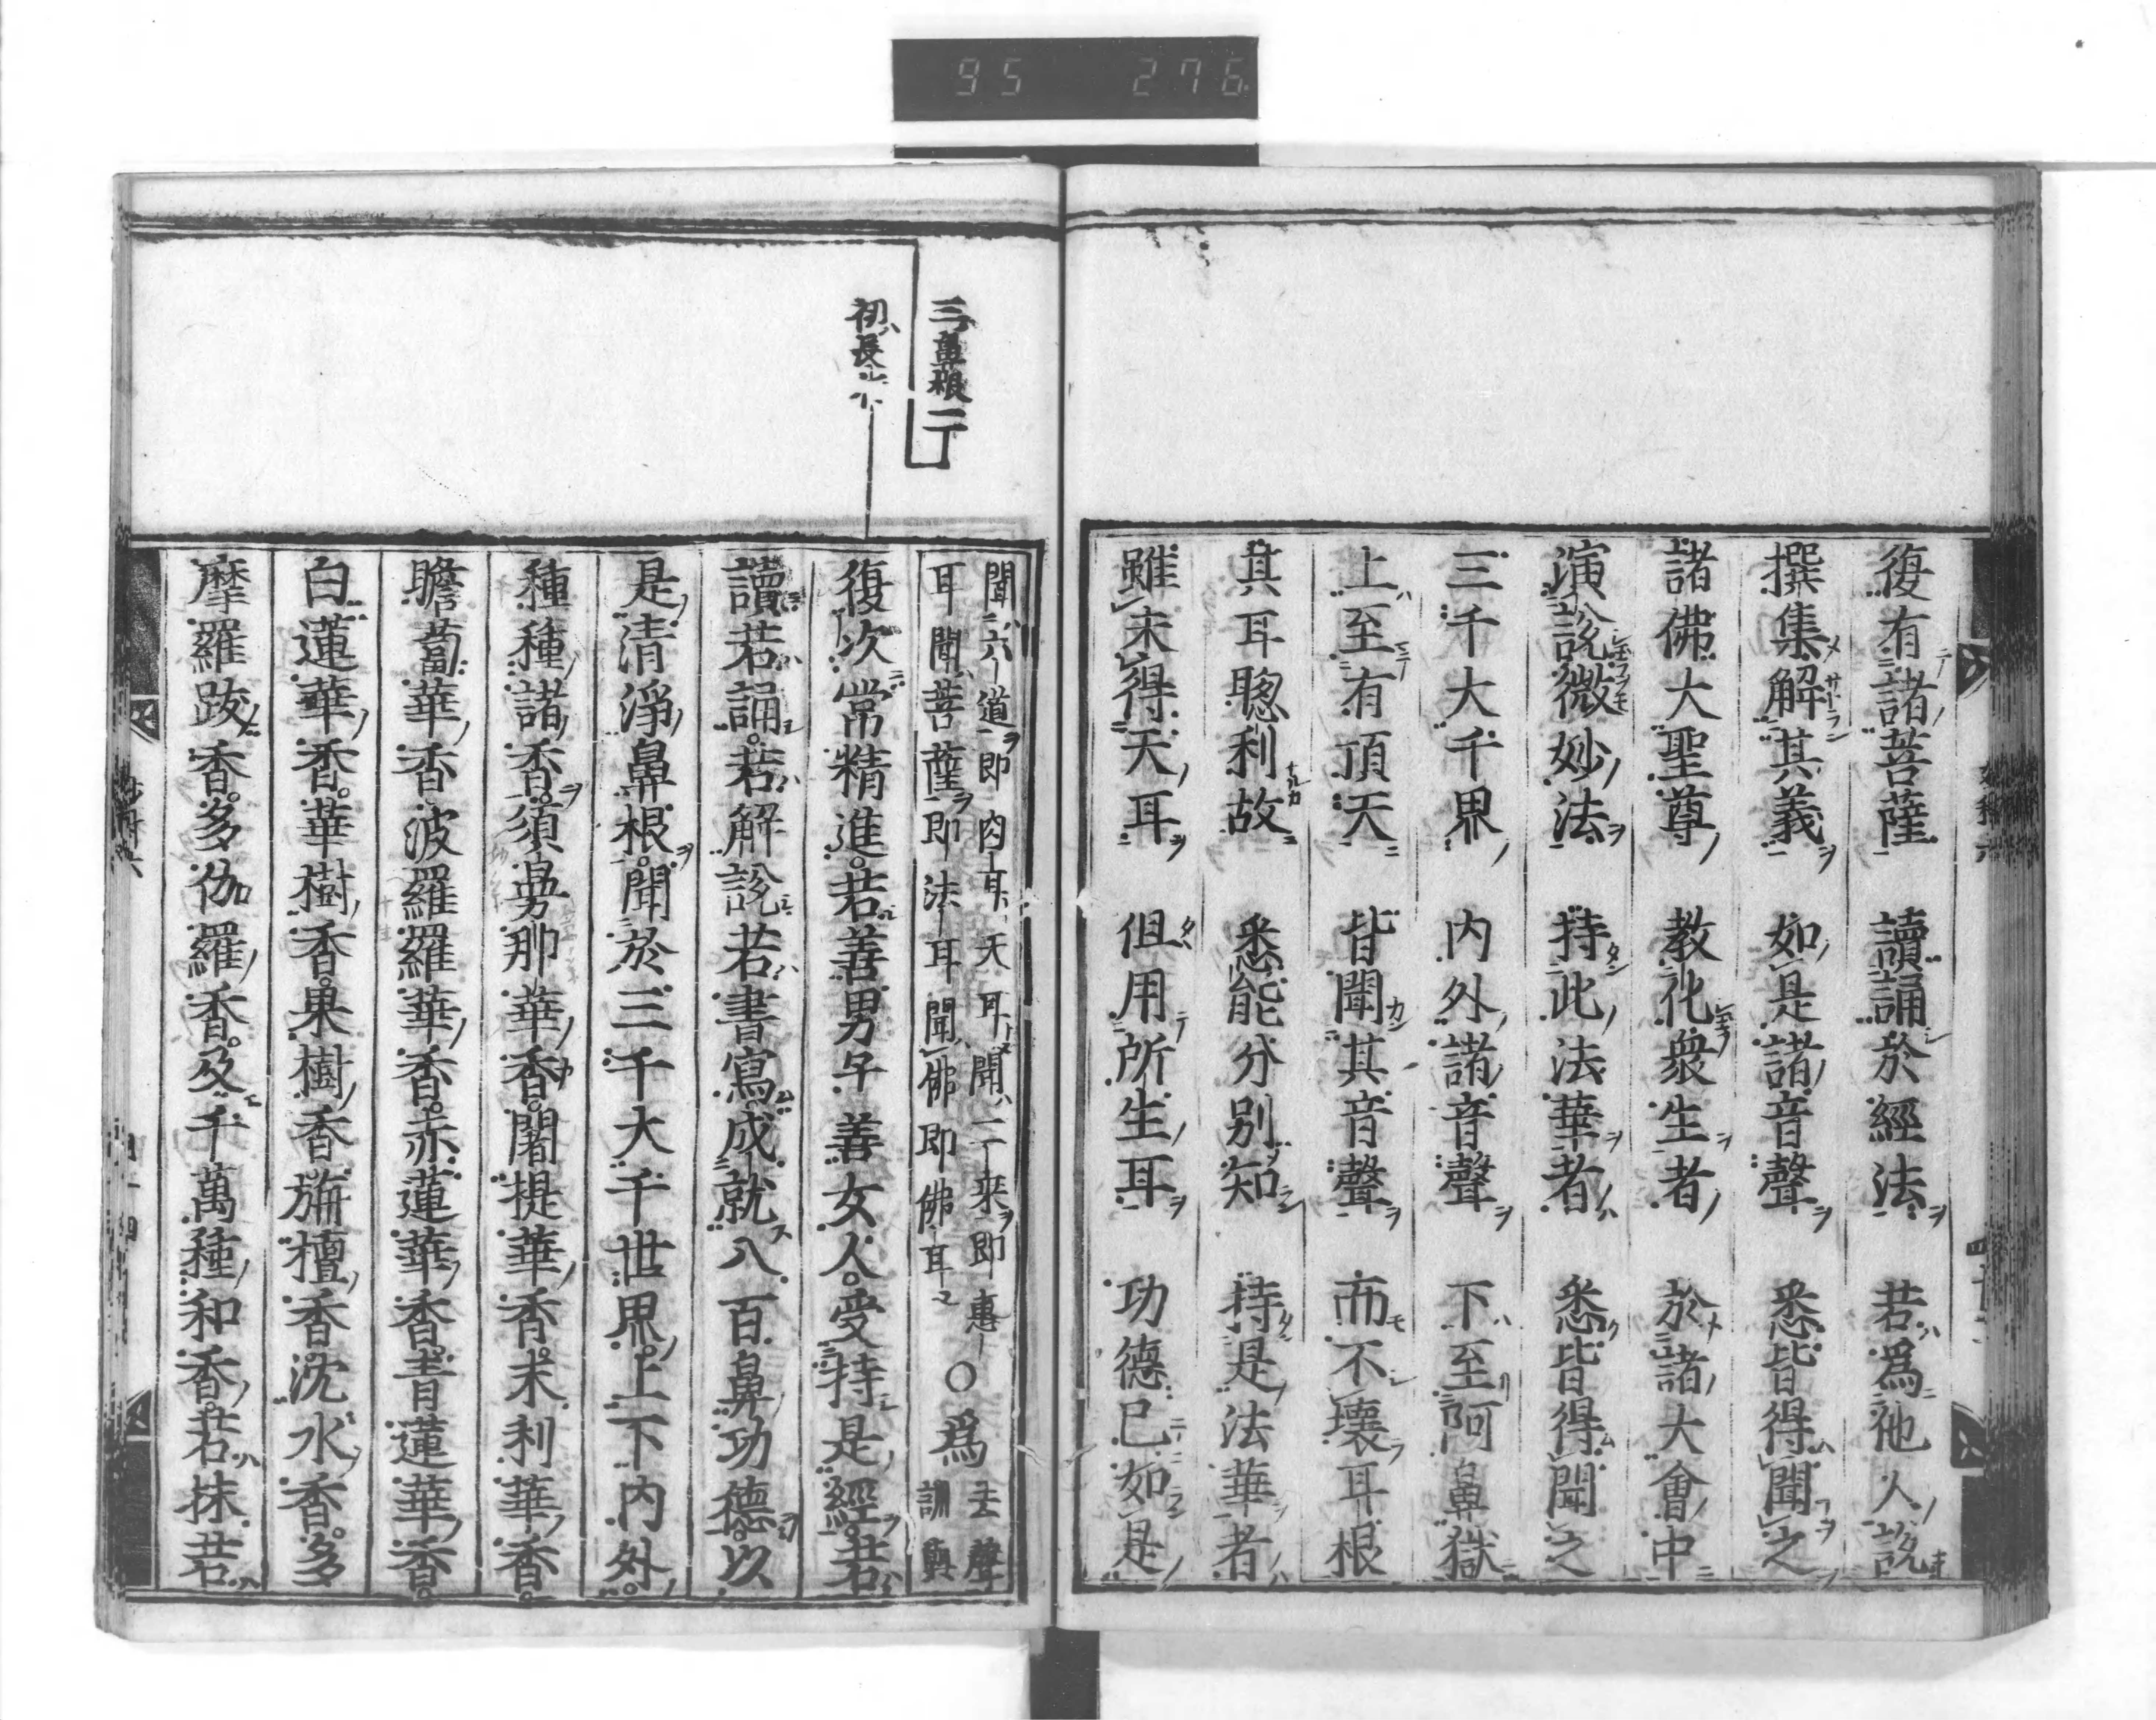 95 276
復有諸菩薩 讀誦於經法 若爲他人說
撰集解其義 如是諸音聲 悉皆得聞之
諸佛大聖尊 教化衆生者 於諸大會中
演說微妙法 持此法華者 悉皆得聞之
三千大千界 内外諸音聲 下至阿鼻獄
上至有頂天 皆聞其音聲 而不壞耳根
其耳聰利故 悉能分別知 持是法華者
雖未得天耳 但用所生耳 功德已如是
三鼻根二
初長
聞六道即肉耳天耳聞二來即惠
耳聞菩薩即法耳聞佛即佛耳
○爲
去聲
訓與
復次常精進。若善男子善女人。受持是經。若
讀若誦。若解說若書寫。成就八百鼻功德。以
是清淨鼻根。聞於三千大千世界。上下内外。
種種諸香。須曼那華香。闍提華香。末利華香。
瞻蔔華香。波羅羅華香。赤蓮華香。青蓮華香。
白蓮華香。華樹香。果樹香。旃檀香。沈水香。多
摩羅跋香。多伽羅香。及千萬種和香。若抹若